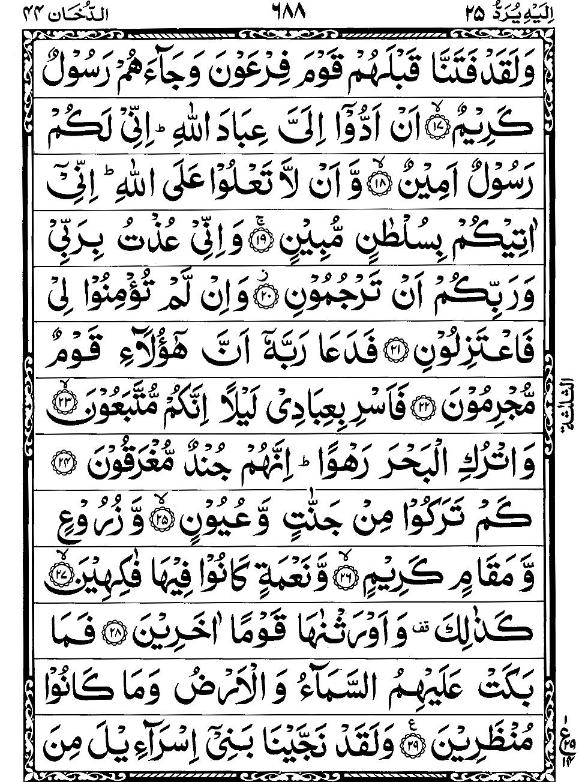 اِلَيْهِ يُرَدُّ ٢٥ ٦٨٨ الدُّخَان ٤٤
وَلَقَدْ فَتَنَّا قَبْلَهُمْ قَوْمَ فِرْعَوْنَ وَجَآءَهُمْ رَسُوْلٌ
كَرِيْمٌ ۙ﴿١٧﴾ اَنْ اَدُّوْٓا اِلَىَّ عِبَادَ اللّٰهِ ؕ اِنِّىْ لَكُمْ
رَسُوْلٌ اَمِيْنٌ ۙ﴿١٨﴾ وَّاَنْ لَّا تَعْلُوْا عَلَى اللّٰهِ ؕ اِنِّىْۤ
اٰتِيْكُمْ بِسُلْطٰنٍ مُّبِيْنٍ ۚ﴿١٩﴾ وَاِنِّىْ عُذْتُ بِرَبِّىْ
وَرَبِّكُمْ اَنْ تَرْجُمُوْنِ ؗ﴿٢٠﴾ وَاِنْ لَّمْ تُؤْمِنُوْا لِىْ
فَاعْتَزِلُوْنِ ﴿٢١﴾ فَدَعَا رَبَّهٗۤ اَنَّ هٰٓؤُلَآءِ قَوْمٌ
مُّجْرِمُوْنَ ؔ﴿٢٢﴾ فَاَسْرِ بِعِبَادِىْ لَيْلًا اِنَّكُمْ مُّتَّبَعُوْنَ ۙ﴿٢٣﴾
وَاتْرُكِ الْبَحْرَ رَهْوًا ؕ اِنَّهُمْ جُنْدٌ مُّغْرَقُوْنَ ﴿٢٤﴾
كَمْ تَرَكُوْا مِنْ جَنّٰتٍ وَّعُيُوْنٍ ۙ﴿٢٥﴾ وَّزُرُوْعٍ
وَّمَقَامٍ كَرِيْمٍ ۙ﴿٢٦﴾ وَّنَعْمَةٍ كَانُوْا فِيْهَا فٰكِهِيْنَ ۙ﴿٢٧﴾
كَذٰلِكَ قف وَاَوْرَثْنٰهَا قَوْمًا اٰخَرِيْنَ ﴿٢٨﴾ فَمَا
بَكَتْ عَلَيْهِمُ السَّمَآءُ وَالْاَرْضُ وَمَا كَانُوْا
مُنْظَرِيْنَ ۧ﴿٢٩﴾ وَلَقَدْ نَجَّيْنَا بَنِىْۤ اِسْرَآءِيْلَ مِنَ
الثلاثة
ع
٢٥
١٤